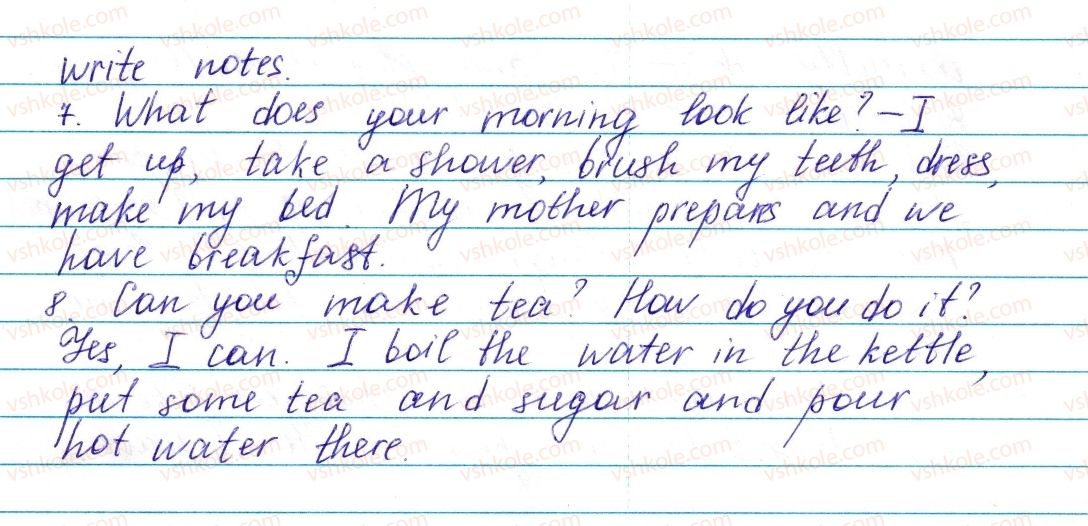 write notes.
7. What does your morning look like? – I
get up, take a shower, brush my teeth, dress,
make my bed. My mother prepares and we
have breakfast.
8. Can you make tea? How do you do it?
Yes, I can. I boil the water in the kettle,
put some tea and sugar and pour
hot water there.